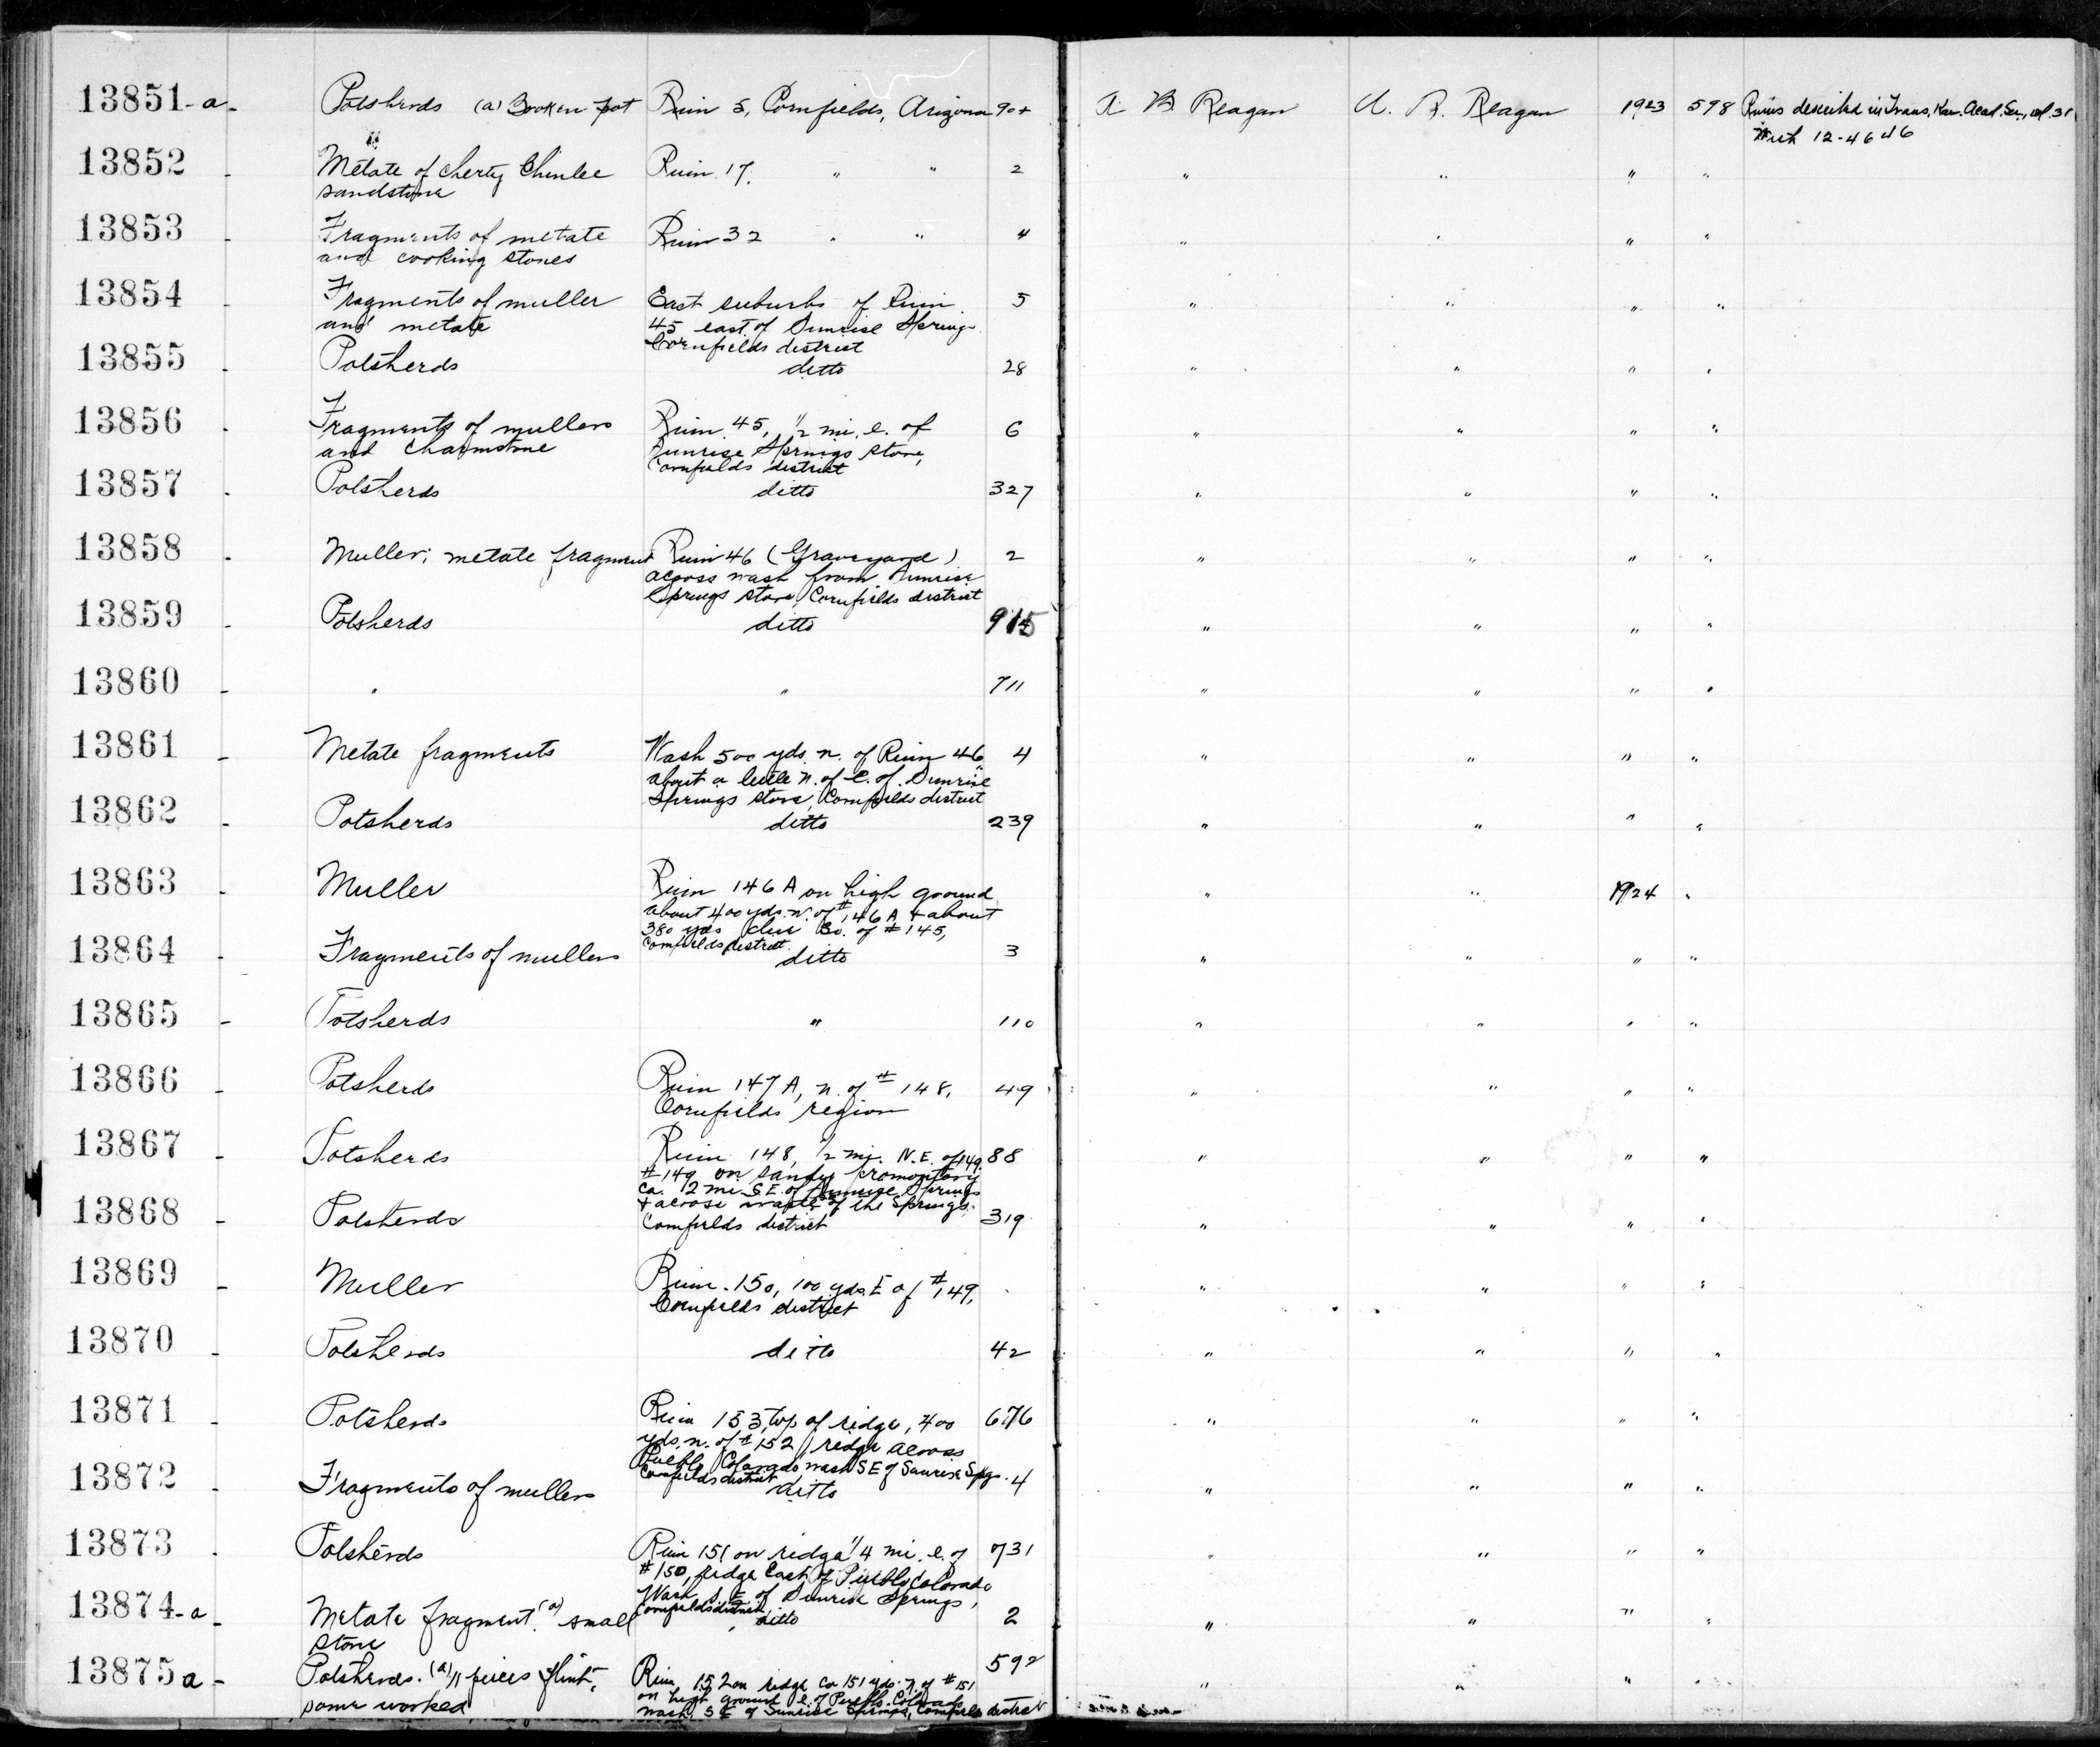 13851-a- Potsherds (a) Broken pot Ruin 5, Cornfields, Arizona 90+ A. B. Reagan A. B. Reagan 1923 598 Ruins described in Trans. Kan. Acad. Sci., vol. 31
13852 - Metate of cherty Chinlee Ruin 17, " " 2 " " " "
sandstone
13853 - Fragments of metate Ruin 32 " " 4 " " " "
and cooking stones
13854 - Fragments of muller East suburbs of Ruin 5 " " " "
and metate 45 east of Sunrise Springs
Cornfields district
13855 - Potsherds ditto 28 " " " "
13856 - Fragments of mullers Ruin 45, 1/2 mi. e. of 6 " " " "
and Charmstone Sunrise Springs store,
Cornfields district
13857 - Potsherds ditto 327 " " " "
13858 - Muller; metate fragment Ruin 46 (Graveyard) 2 " " " "
across wash from Sunrise
Springs store, Cornfields district
13859 - Potsherds ditto 915 " " " "
13860 - " " 711 " " " "
13861 - Metate fragments Wash 500 yds. n. of Ruin 46, 4 " " " "
about a little n. of e. of Sunrise
Springs store, Cornfields district
13862 - Potsherds ditto 239 " " " "
13863 - Muller Ruin 146 A on high ground " " 1924 "
about 400 yds. n. of #146 A + about
380 yds due So. of #145,
Cornfields district
13864 - Fragments of mullers ditto 3 " " " "
13865 - Potsherds " 110 " " " "
13866 - Potsherds Ruin 147 A, n. of #148, 49 " " " "
Cornfields region
13867 - Potsherds Ruin 148, 1/2 mi. N.E. of 149. 88 " " " "
#149 on sandy promontory
ca. 2 mi. S.E. of Sunrise Springs
+ across of the Springs,
13868 - Potsherds Cornfields district 319 " " " "
13869 - Muller Ruin 150, 100 yds. E of #149, " " " "
Cornfields district
13870 - Potsherds ditto 42 " " " "
13871 - Potsherds Ruin 153, top of ridge, 400 676 " " " "
yds. n. of #152, ridge across
Pueblo Colorado wash SE of Sunrise Spgs.
Cornfields district
13872 - Fragments of mullers ditto 4 " " " "
13873 - Potsherds Ruin 151 on ridge 1/4 mi. e. of 731 " " " "
#150, ridge East of Pueblo Colorado
Wash S.E. of Sunrise Springs,
Cornfields district
13874-a - Metate fragment. (a) small ditto 2 " " " "
stone
13875a - Potsherds. (a) 11 pieces flint, Ruin 152 on ridge ca 151 yds. n. of #151 592 " " " "
some worked on high ground e. of Pueblo Colorado
wash, S E of Sunrise Springs, Cornfields district